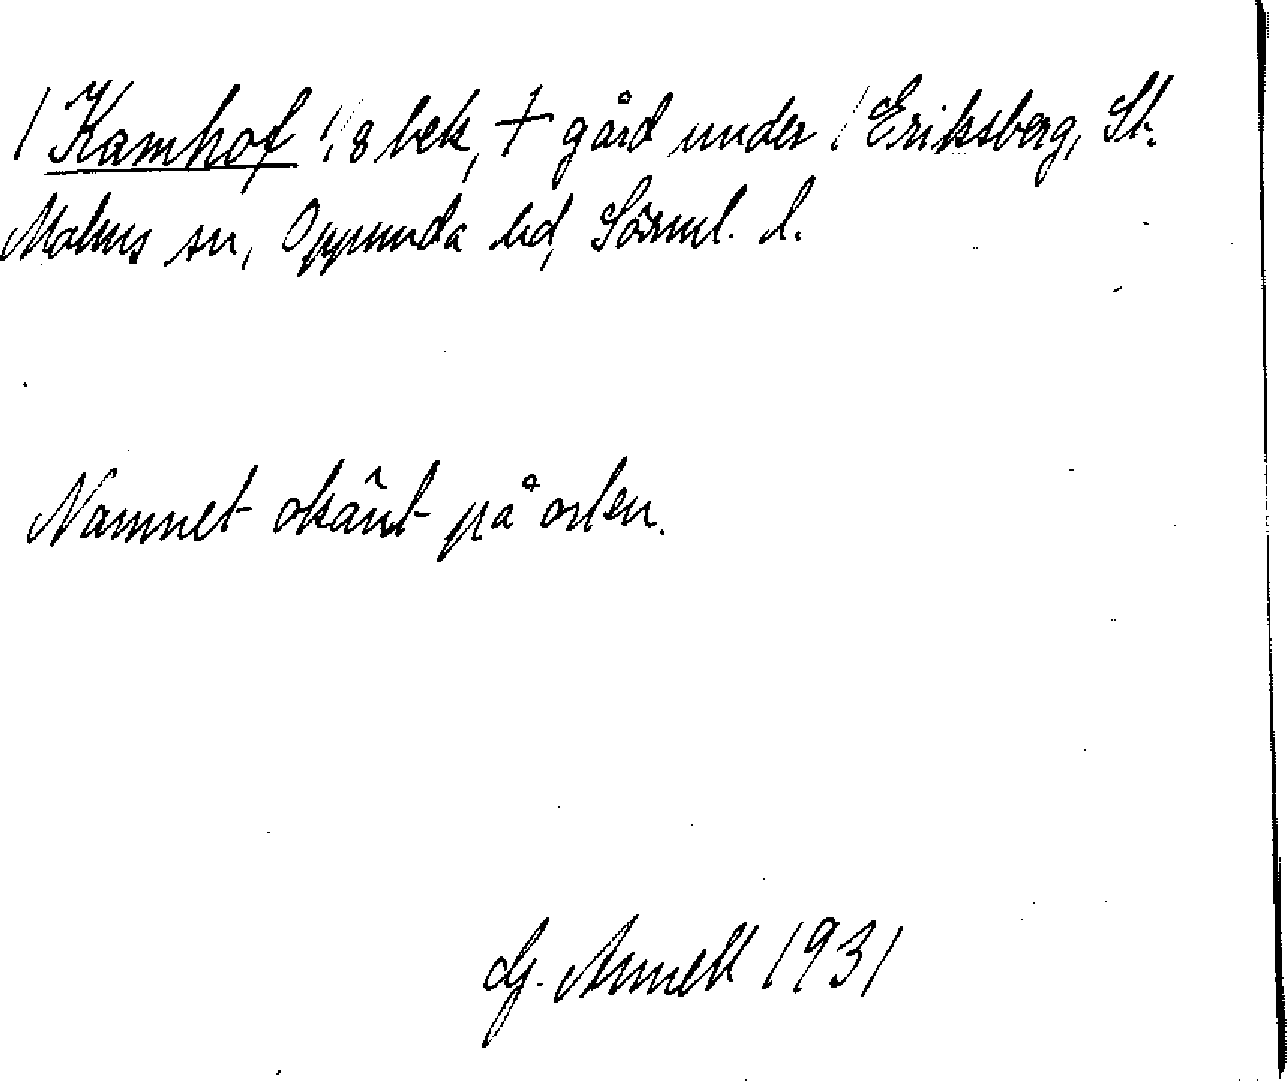 / Kamhof 1/8 bek, + gård under / Eriksberg, St.
Malms sn, Oppunda hd, Sörml. l.
Namnet okänt på orten.
G. Annell 1931